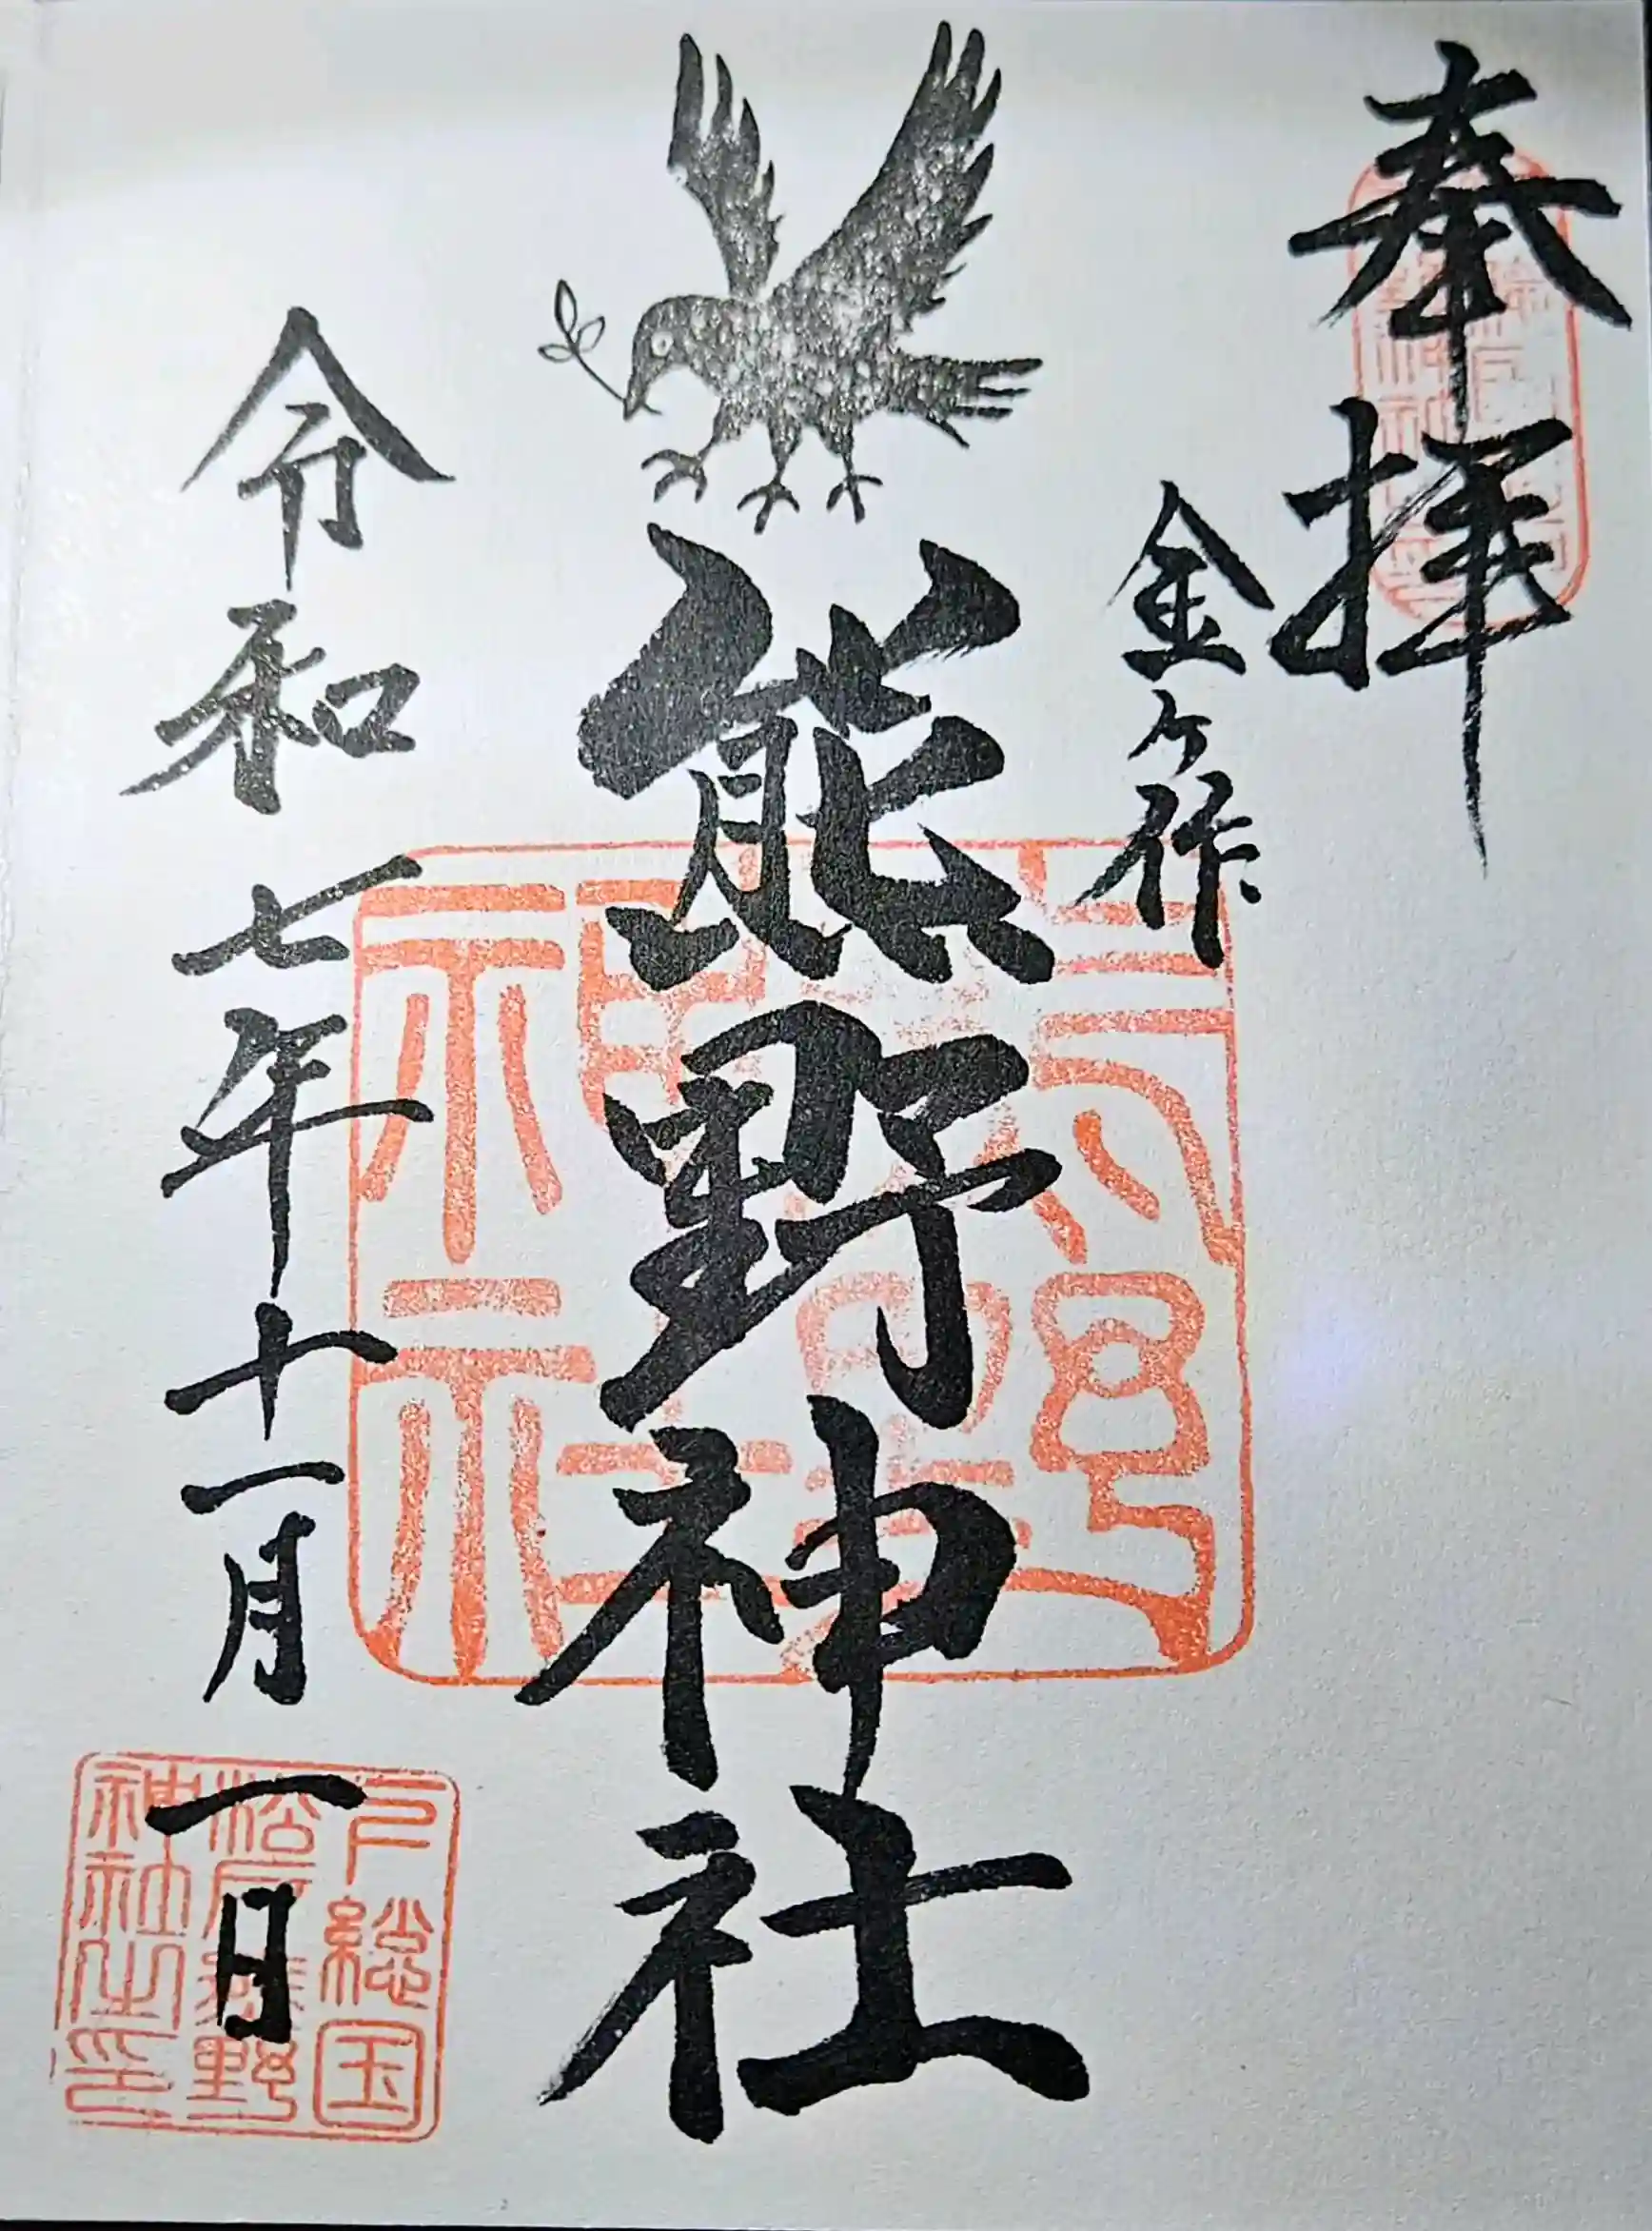 奉拝
金ケ作
熊野神社
令和七年十一月一日
下総国
松戸熊野
神社之印